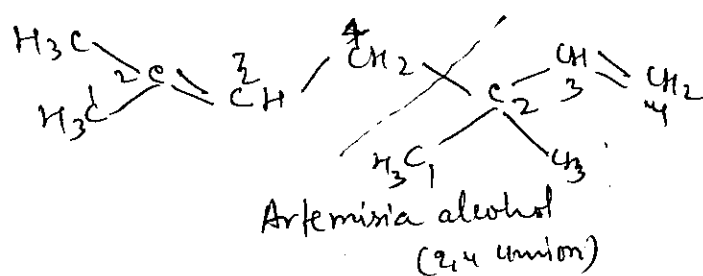 H3C
H3C 1 2 C CH 3 CH2 4 C 2 CH 3 CH2 4
H3C 1 CH3
Artemisia alcohol
(2,4 union)